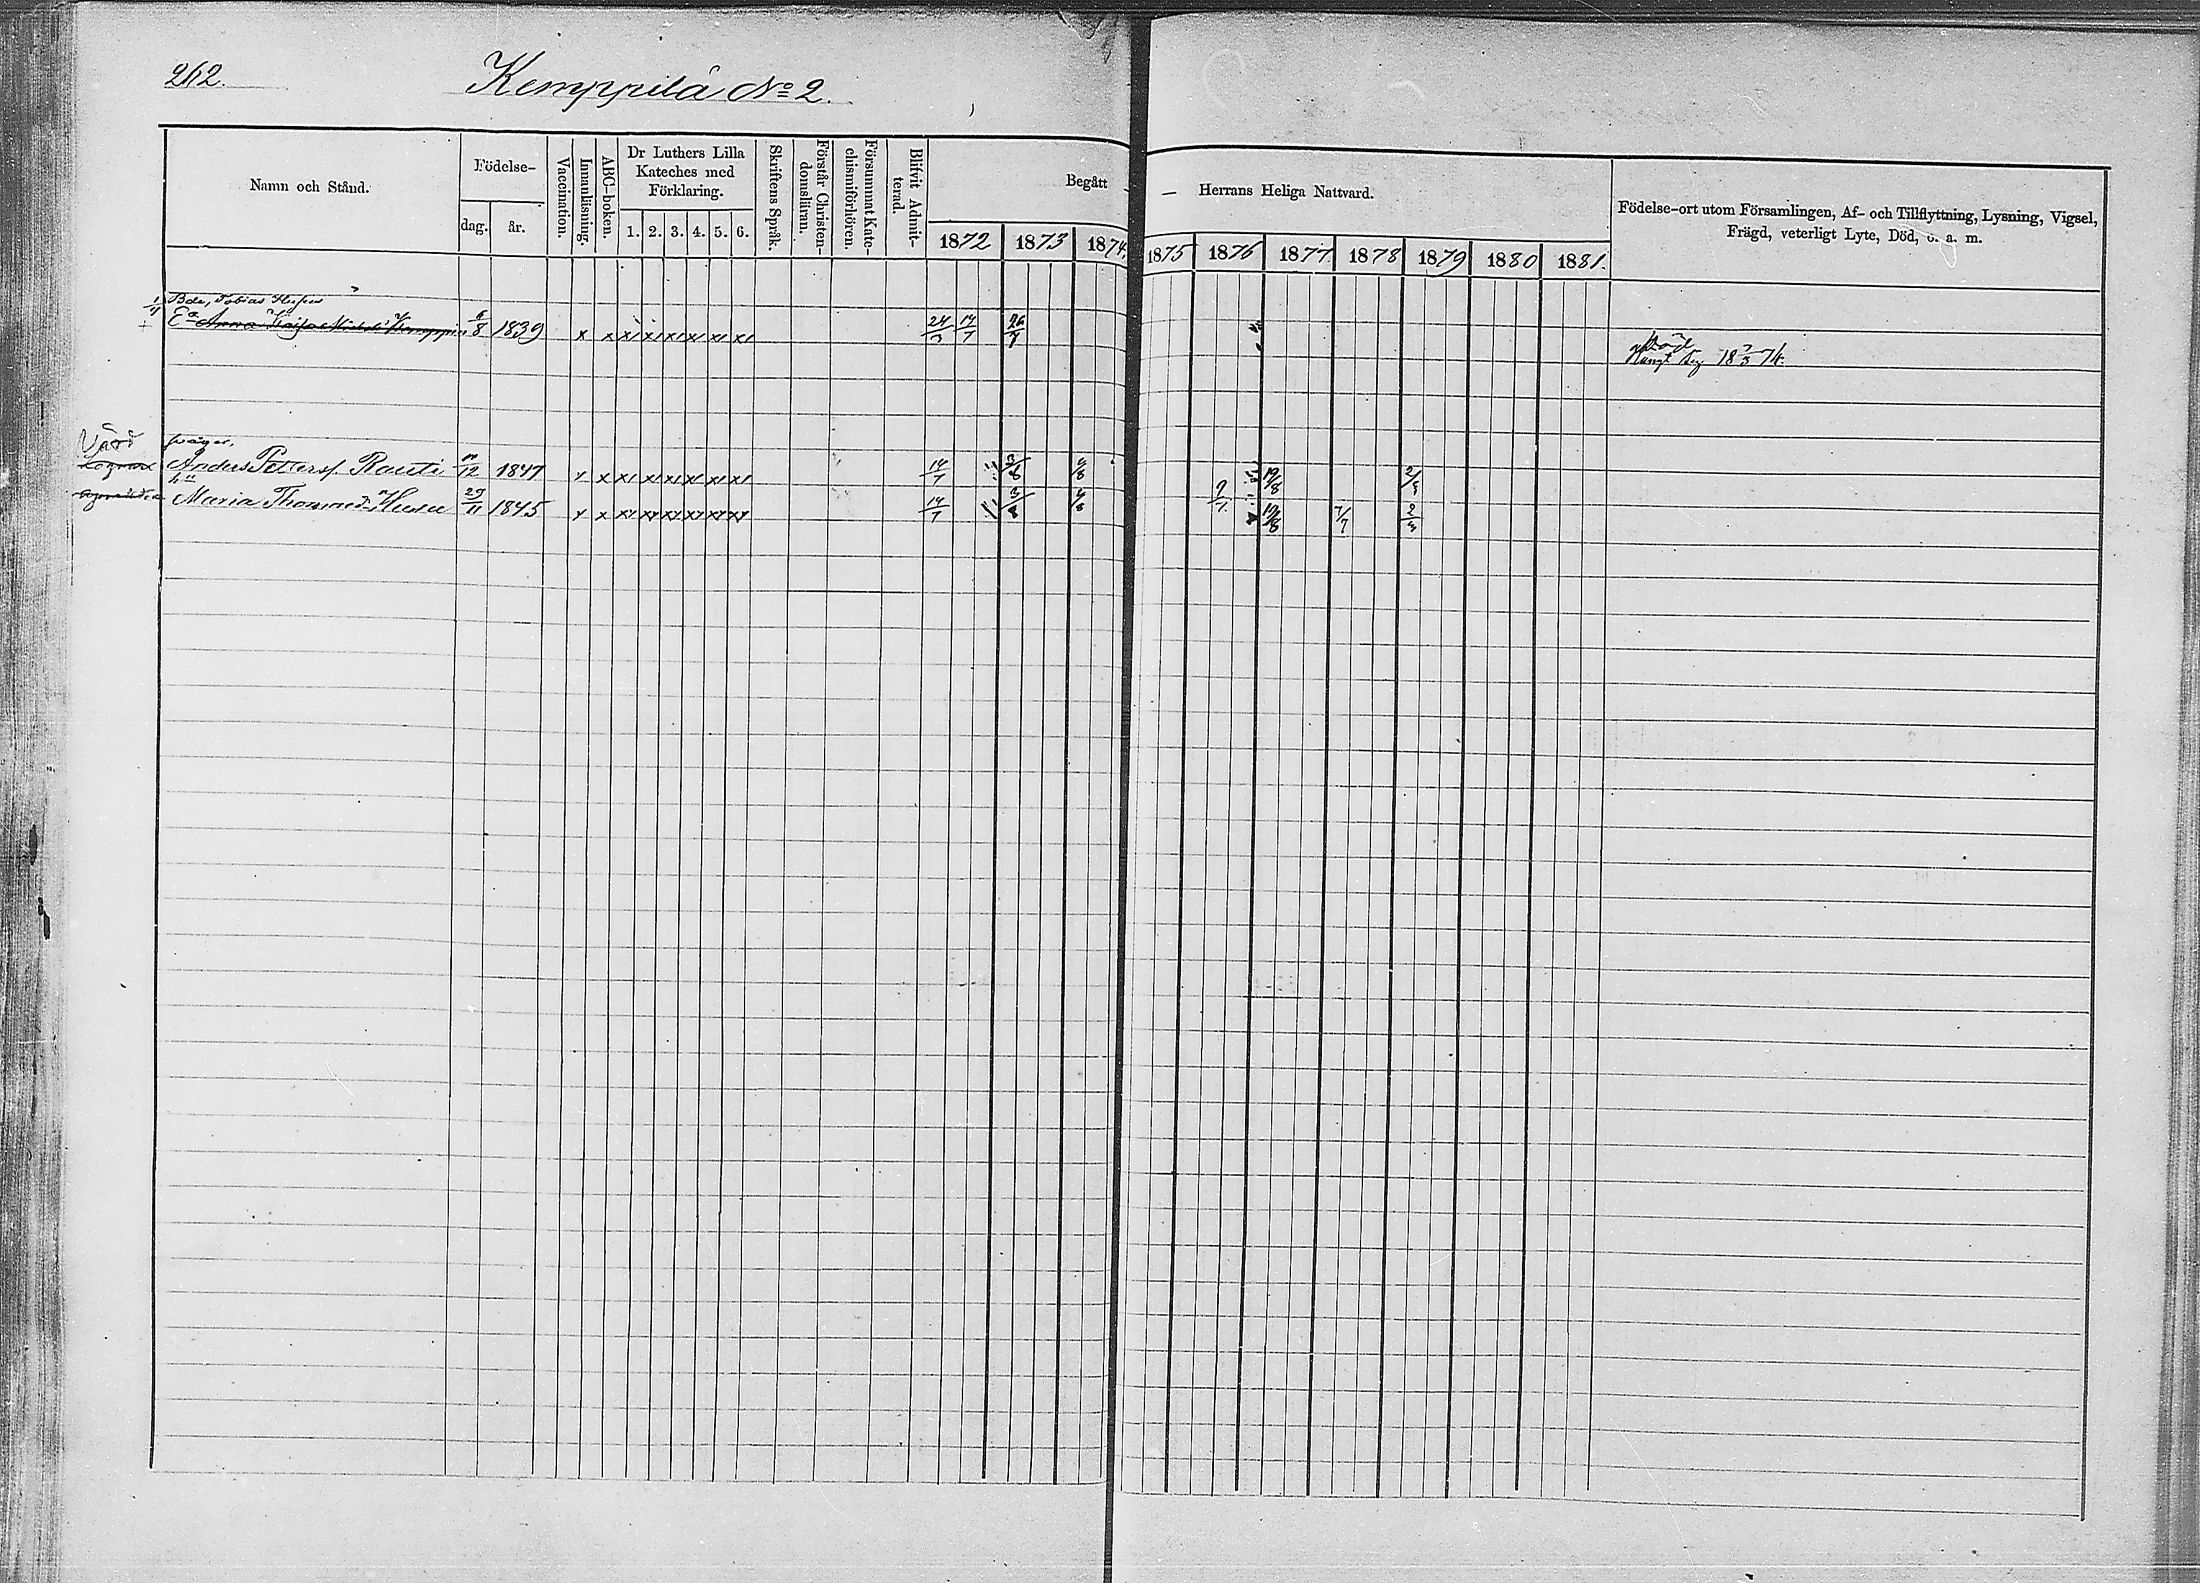 262.
Kemppilä No 2.
Namn och Stånd.
Födelse-
dag. år.
Vaccination.
Innanläsning.
ABC-boken.
Dr Luthers Lilla
Kateches med
Förklaring.
1. 2. 3. 4. 5. 6.
Skriftens Språk.
Förstår Christen-
domsläran.
Försummat Kate-
chismiförhören.
Blifvit Admit-
terad.
Begått — — Herrans Heliga Nattvard.
1872 1873 1874 1875 1876 1877 1878 1879 1880 1881.
Födelse-ort utom Församlingen, Af- och Tillflyttning, Lysning, Vigsel,
Frägd, veterligt Lyte, Död, o. a. m.
Bde, Tobias
Ea Anna Kaisa Kemppi 6/8 1839 x x x x x x x x 24 14/7 26/7
Död
Hängt sig 18 7/3 74.
Värd
svåger,
Anders Petters. Rauti 10/12 1847 x x x x x x x x 14/7 3/8 4/8 19/8 2/3
hu
Maria Thomasd. Husu 29/11 1845 x x x x x x x x 14/7 3/8 4/8 9/7 19/8 7/7 2/3